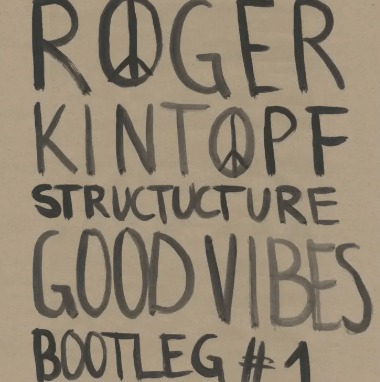 ROGER
KINTOPF
STRUCTUCTURE
GOOD VIBES
BOOTLEG #1